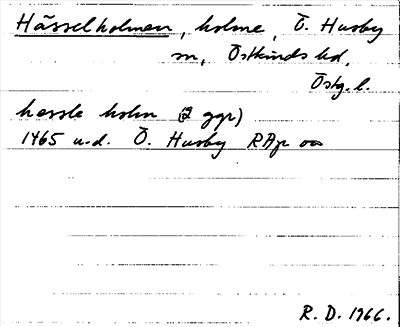 Hässelholmen, holme, Ö. Husby
sn, Östkinds hd,
Östg. l.
hessle holm (2 ggr)
1465 u.d. Ö. Husby RAp oo
R. D. 1966.